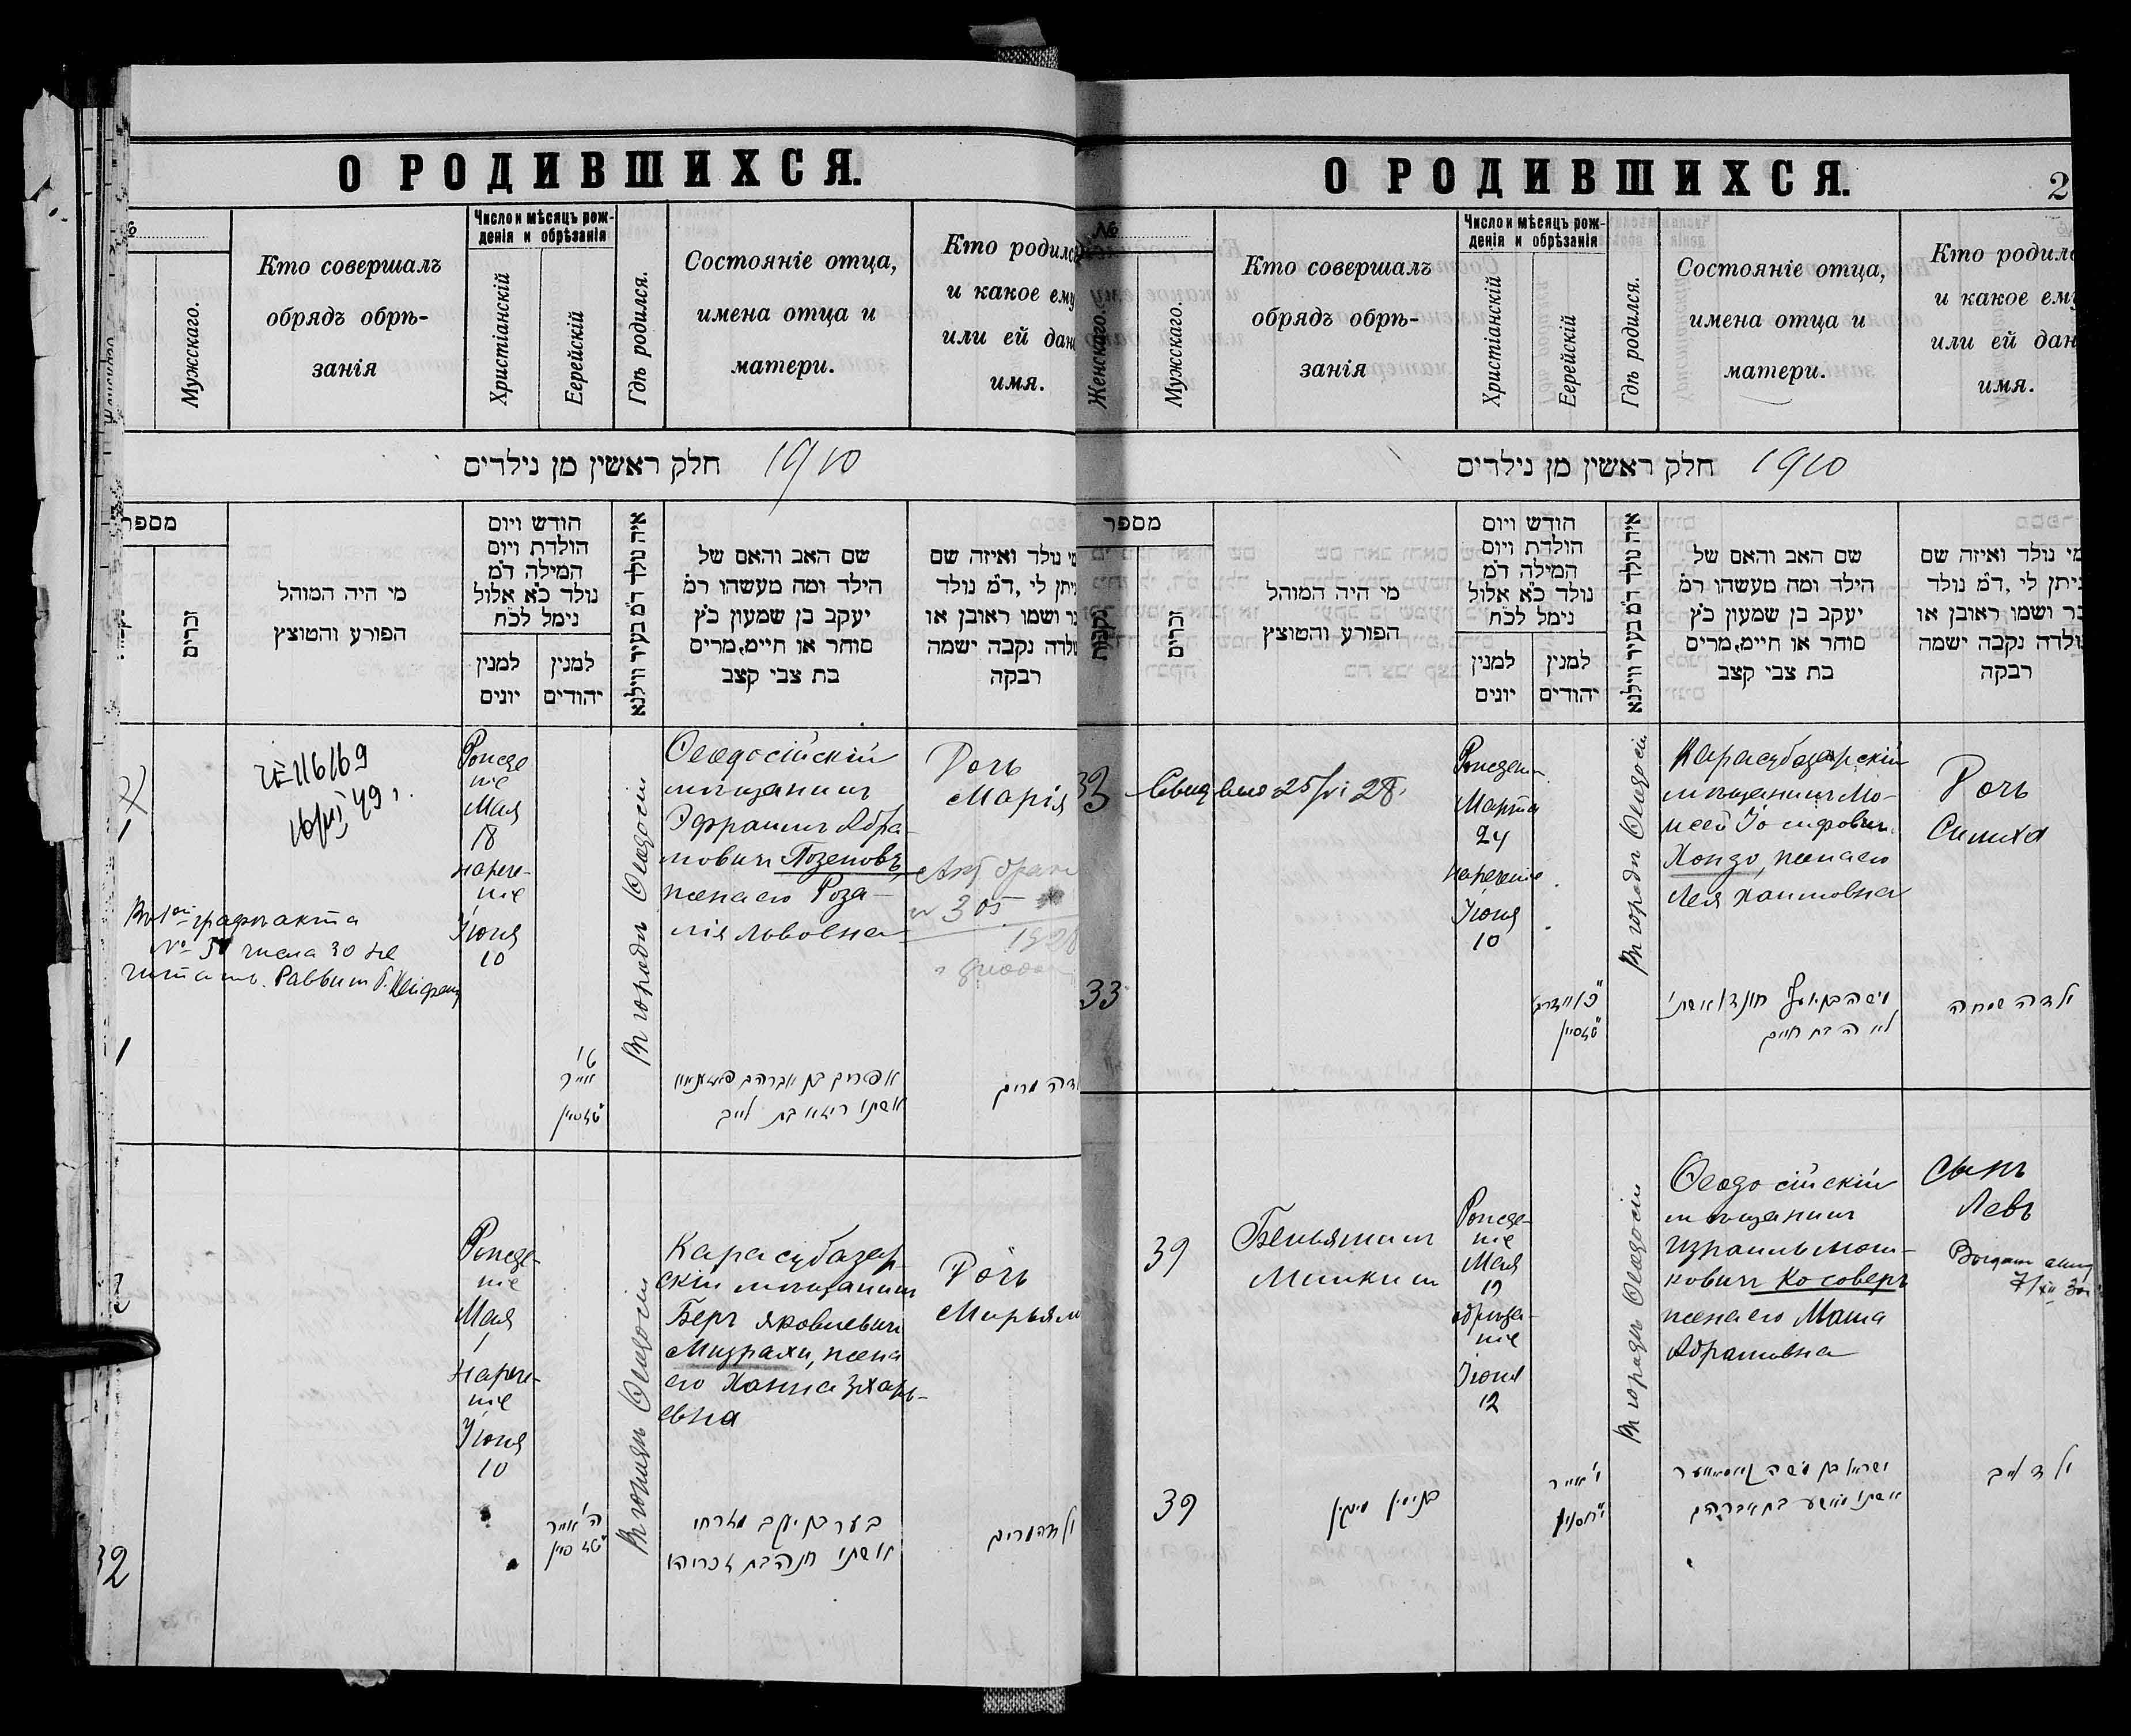 О РОДИВШИХСЯ.
№
Мужскаго.
Кто совершалъ
обрядъ обрѣ-
занія
Число и мѣсяцъ рож-
денія и обрѣзанія
Христіанскій
Еврейскій
Гдѣ родился.
Состояніе отца,
имена отца и
матери.
Кто родился
и какое ему
или ей дано
имя.
חלק ראשין מן נילדים 1910
מספר
זכרים
מי היה המוהל
הפורע והמוצץ
חודש ויום
הולדת ויום
המילה ד״מ
נולד כ״א אלול
נימל לכ״ח
למנין
יונים
למנין
יהודים
איה נולד ד״מ בעיר ווילנא
שם האב והאם של
הילד ומה מעשהו ד״מ
יעקב בן שמעון כ״ץ
סוחר או חיים, מרים
בת צבי קצב
מי נולד ואיזה שם
ניתן לי, ד״מ נולד
זכר ושמו ראובן או
נולדה נקבה ישמה
רבקה
Рожде
ніе
Мая
18
нарече-
ніе
Іюня
10
Въ городѣ Ѳеодосіи
Ѳеодосійскій
мѣщанинъ
Эфраимъ Абра-
мовичъ Поземовъ,
жена его Роза-
лія Львовна
Дочь
Марія
№ 305
Въ 1ой графѣ акта
№ 31 числа 30 не
читать. Раввинъ
אפרים בן אברהם
אשתו ריזא בת לייב
ילדה מרים
Рожде-
ніе
Мая
1
Нарече-
ніе
Іюня
10
Въ городѣ Ѳеодосіи
Карасубазар-
скій мѣщанинъ
Беръ Яковлевичъ
Мизрахи, жена
его Ханна Зхарь-
евна
Дочь
Мирьям
32
ה׳ אייר
בער בן יעקב מזרחי
אשתו חנה בת זכריהו
ילדה מרים
О РОДИВШИХСЯ.
2
№
Женскаго.
Мужскаго.
Кто совершалъ
обрядъ обрѣ-
занія
Число и мѣсяцъ рож-
денія и обрѣзанія
Христіанскій
Еврейскій
Гдѣ родился.
Состояніе отца,
имена отца и
матери.
Кто родилс
и какое ему
или ей дан
имя.
חלק ראשין מן נילדים 1910
מספר
נקבות
זכרים
מי היה המוהל
הפורע והמוצץ
חודש ויום
הולדת ויום
המילה ד״מ
נולד כ״א אלול
נימל לכ״ח
למנין
יונים
למנין
יהודים
איה נולד ד״מ בעיר ווילנא
שם האב והאם של
הילד ומה מעשהו ד״מ
יעקב בן שמעון כ״ץ
סוחר או חיים, מרים
בת צבי קצב
מי נולד ואיזה שם
ניתן לי, ד״מ נולד
זכר ושמו ראובן או
נולדה נקבה ישמה
רבקה
33
25/VI 28.
Рожден.
Марта
24
Нареченіе
Іюня
10
Въ городѣ Ѳеодосіи
Карасубазарскій
мѣщанинъ Мо-
исей Іосифовичъ
Хондо, жена его
Лея Хаимовна
Дочь
Симха
33
משה בן יוסף חונדו אשתו
לאה בת חיים
ילדה שמחה
39
Беньяминъ
Минкинъ
Рожде-
ніе
Мая
19
обрѣза-
ніе
Іюня
12
Въ городѣ Ѳеодосіи
Ѳеодосійскій
мѣщанинъ
Израиль Мош-
ковичъ Косоверъ
жена его Маша
Абрамовна
Сынъ
Левъ
39
בנימין מינקין
י׳ אייר
ישראל בן משה קאסאווער
אשתו מאשע בת אברהם
ילד לייב